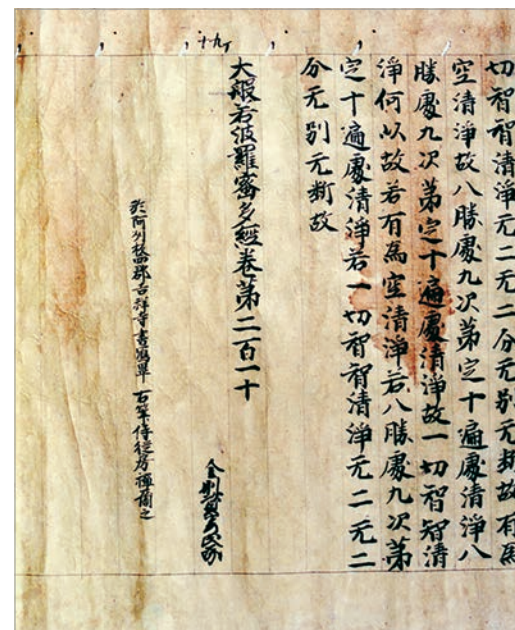 十九
切智智清淨无二无二分无別无斷故有為
空清淨故八勝處九次第定十遍處清淨八
勝處九次第定十遍處清淨故一切智智清
淨何以故若有為空清淨若八勝處九次第
定十遍處清淨若一切智智清淨无二无二
分无別无斷故
大般若波羅蜜多經卷第二百一十
金剛
阿列郡吉祥寺書寫畢 右筆侍從房禪